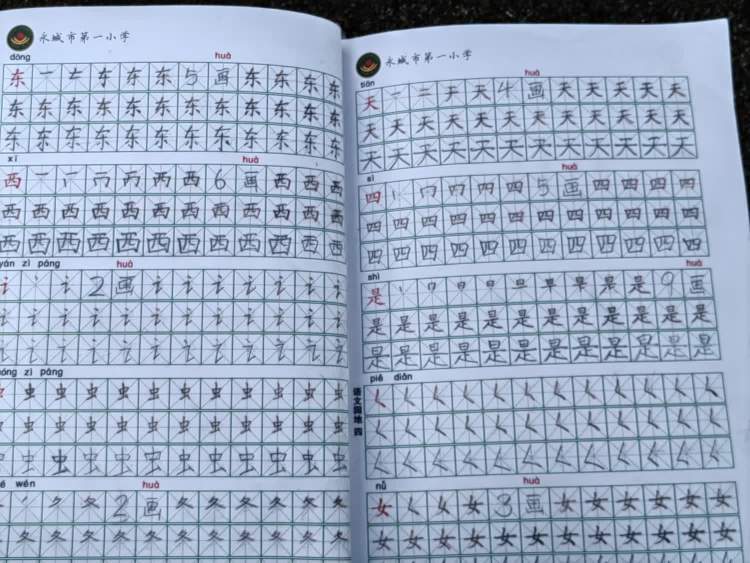 永城市第一小学
dōng huà
东 一 东 东 5 画 东 东 东 东
东 东 东 东 东 东 东 东 东 东 东 东
东 东 东 东 东 东 东 东 东 东 东 东
xī huà
西 一 丆 西 西 6 画 西 西 西
西 西 西 西 西 西 西 西 西 西 西 西
西 西 西 西 西 西 西 西 西 西 西 西
yán zì páng huà
讠 丶 讠 2 画 讠 讠 讠 讠 讠 讠 讠
讠 讠 讠 讠 讠 讠 讠 讠 讠 讠 讠 讠
讠 讠 讠 讠 讠 讠 讠 讠 讠 讠 讠 讠
óng zì páng
虫 虫 虫 虫 虫 虫 虫 虫 虫 虫 虫 虫
虫 虫 虫 虫 虫 虫 虫 虫 虫 虫 虫 虫
虫 虫 虫 虫 虫 虫 虫 虫 虫 虫 虫 虫
é wén huà
夂 夂 3 画 夂 夂 夂 夂 夂 夂
夂 夂 夂 夂 夂 夂 夂 夂 夂 夂 夂
永城市第一小学
tiān huà
天 一 二 天 天 4 画 天 天 天 天 天
天 天 天 天 天 天 天 天 天 天 天 天
天 天 天 天 天 天 天 天 天 天 天 天
sì huà
四 丨 冂 四 四 5 画 四 四 四 四
四 四 四 四 四 四 四 四 四 四 四 四
四 四 四 四 四 四 四 四 四 四 四 四
shì huà
是 丨 冂 日 日 旦 早 是 是 9 画
是 是 是 是 是 是 是 是 是 是 是 是
是 是 是 是 是 是 是 是 是 是 是 是
语文园地 四
piě diǎn
𡿨 𡿨 𡿨 𡿨 𡿨 𡿨 𡿨 𡿨 𡿨 𡿨 𡿨 𡿨
𡿨 𡿨 𡿨 𡿨 𡿨 𡿨 𡿨 𡿨 𡿨 𡿨 𡿨 𡿨
𡿨 𡿨 𡿨 𡿨 𡿨 𡿨 𡿨 𡿨 𡿨 𡿨 𡿨 𡿨
nǚ huà
女 𡿨 女 女 3 画 女 女 女 女 女 女
女 女 女 女 女 女 女 女 女 女 女 女